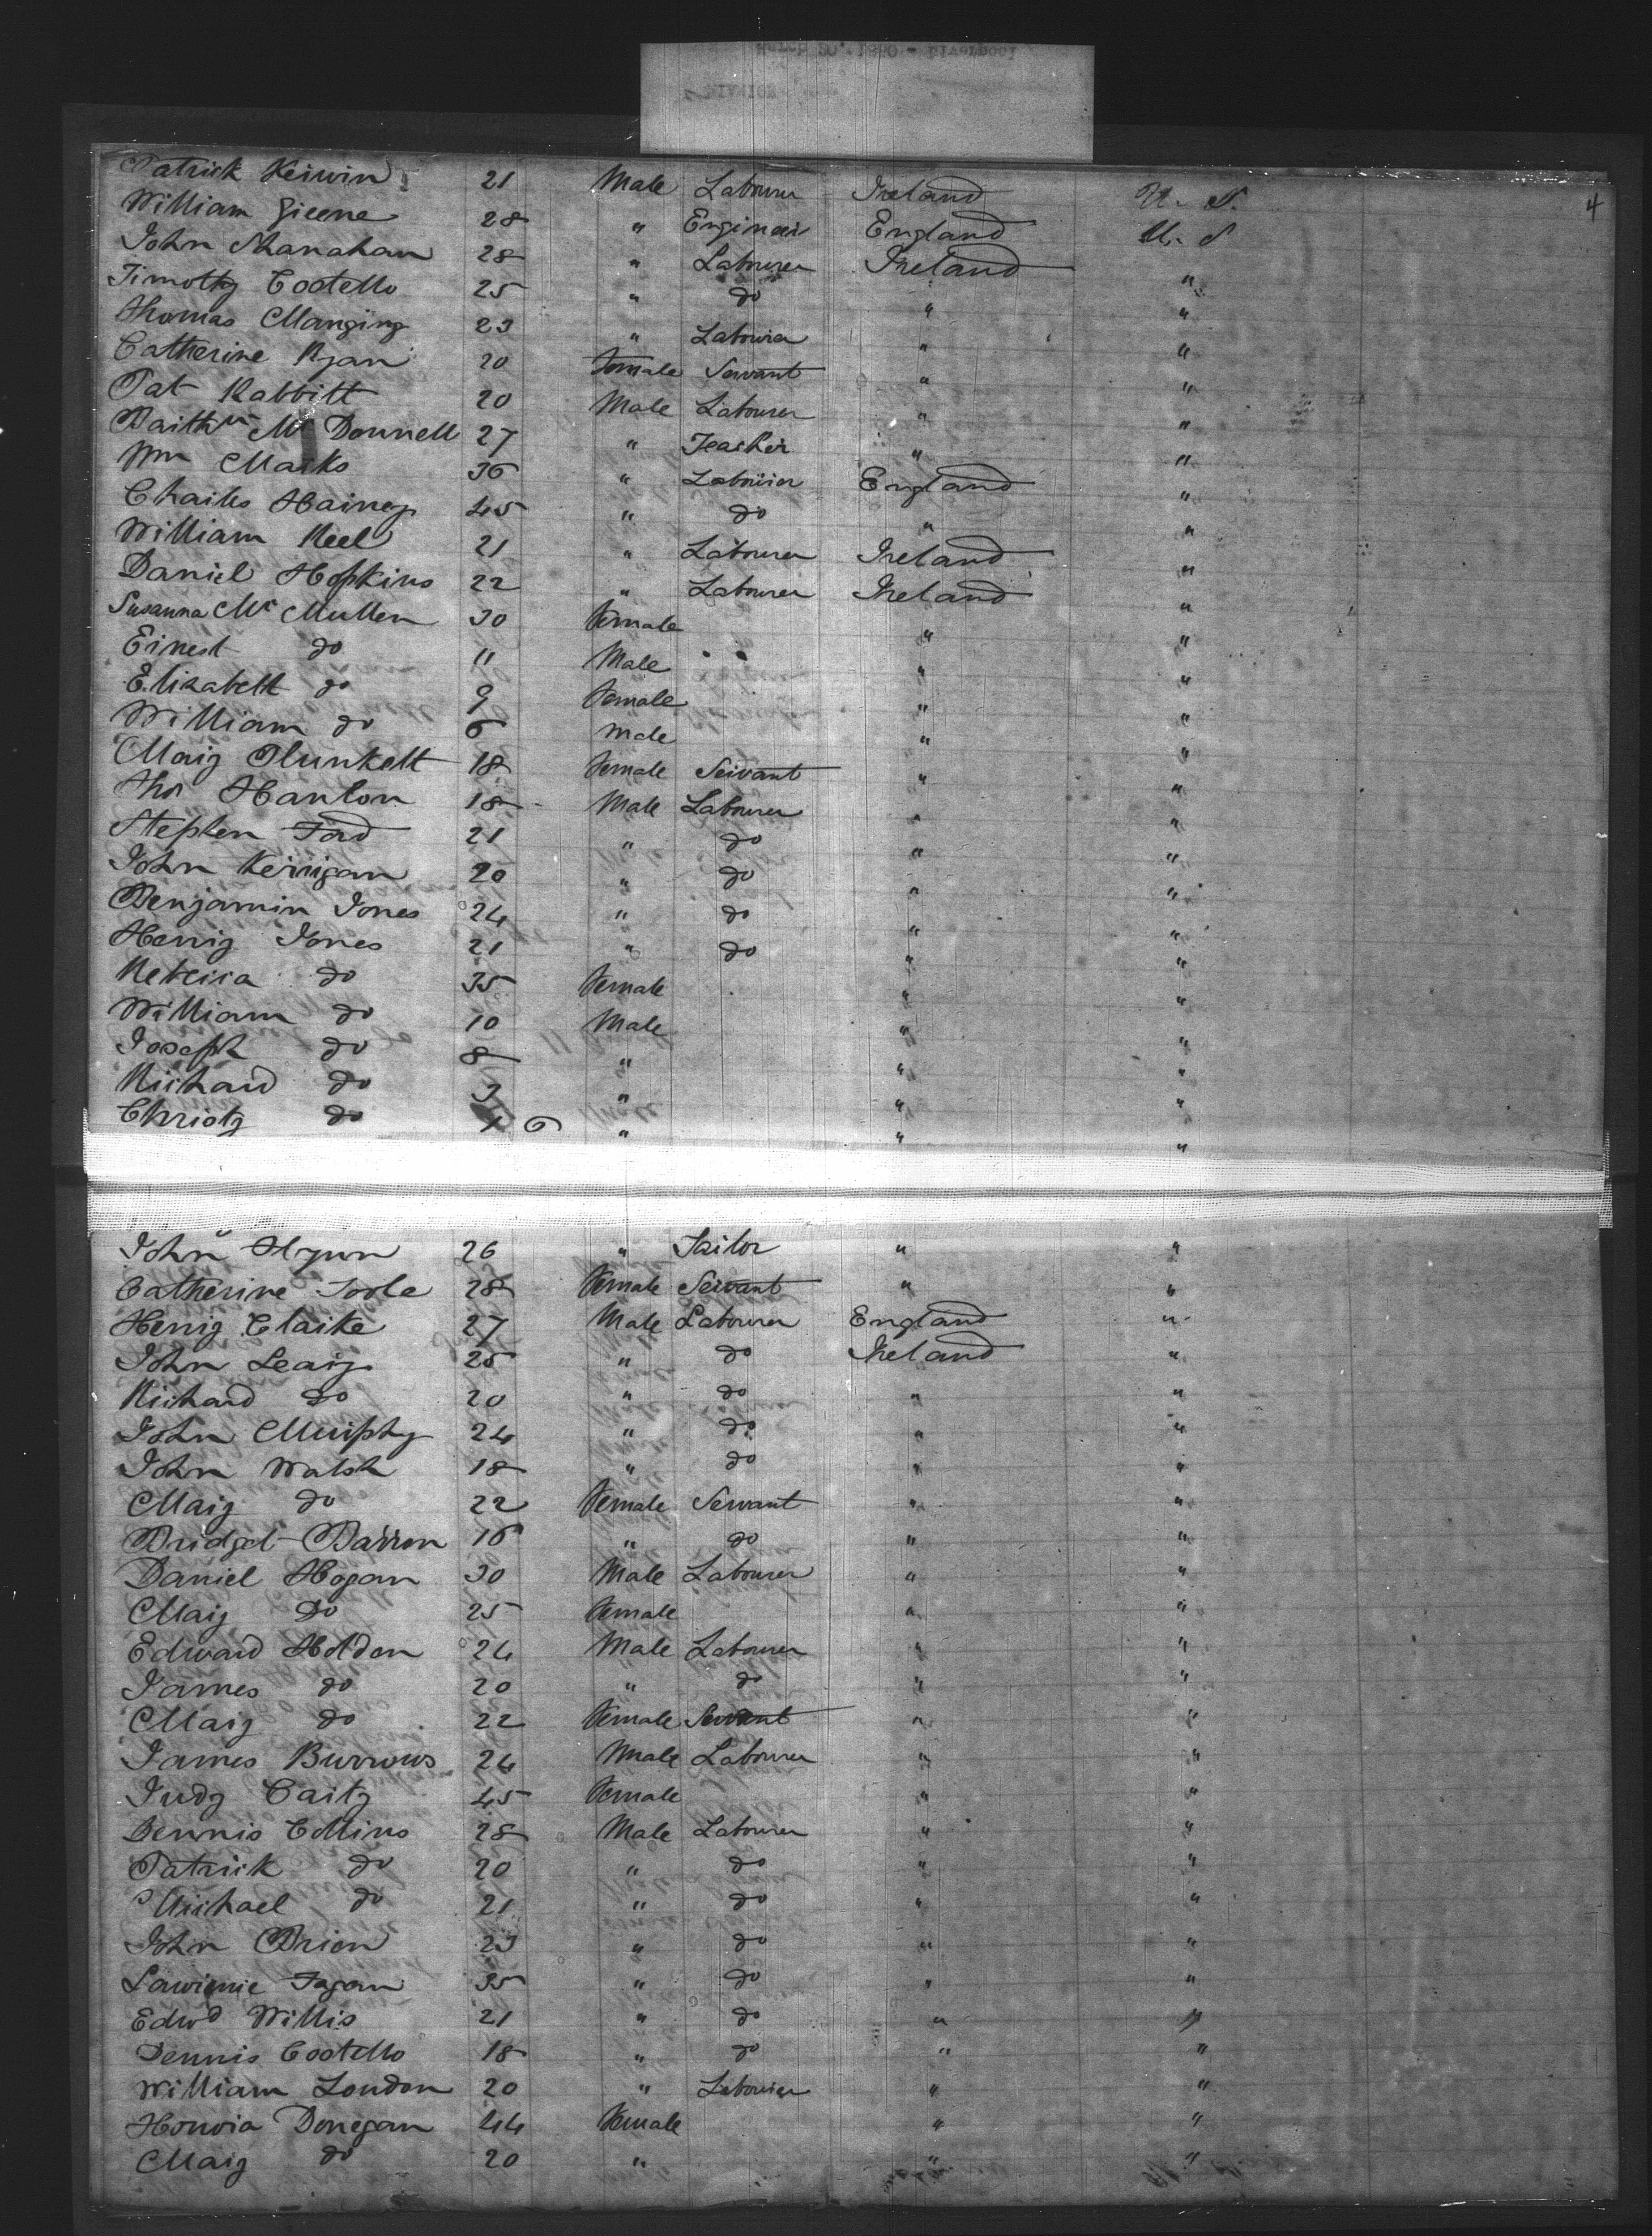 4
Patrick Kerwin 21 Male Labourer Ireland U. S.
William Greene 28 " Engineer England U. S
John Shanahan 28 " Labourer Ireland "
Timothy Costello 25 " do " "
Thomas 23 " Labourer " "
Catherine Ryan 20 Female Servant " "
Pat Rabbitt 20 Male Labourer " "
Barthw Mc Donnell 27 " Teacher " "
Wm Marks 36 " Labourer England "
Charles 45 " do " "
William 21 " Labourer Ireland "
Daniel Hopkins 22 " Labourer Ireland "
Susanna Mc Mullen 30 Female " "
Ernest do 11 Male " "
Elizabeth do 9 Female " "
William do 6 Male " "
Mary Plunkett 18 Female Servant " "
Thos Hanlon 18 Male Labourer " "
Stephen Ford 21 " do " "
John Kerrigan 20 " do " "
Benjamin Jones 24 " do " "
Henry Jones 21 " do " "
do 35 Female " "
William do 10 Male " "
Joseph do 8 " " "
Richard do 3 " " "
Christy do 6 " " "
John 26 " Tailor " "
Catherine Toole 28 Female Servant " "
Henry Clarke 27 Male Labourer England "
John Leary 25 " do Ireland "
Richard do 20 " do " "
John Murphy 24 " do " "
John Walsh 18 " do " "
Mary do 22 Female Servant " "
Bridget Barron 16 " do " "
Daniel Hogan 30 Male Labourer " "
Mary Do 25 Female " "
Edward Holden 24 Male Labourer " "
James do 20 " do " "
Mary do 22 Female Servant " "
James Burrows 24 Male Labourer " "
Judy Carty 45 Female " "
Dennis Collins 28 Male Labourer " "
Patrick do 20 " do " "
Michael do 21 " do " "
John Brien 23 " do " "
Lawrence Fagan 35 " do " "
Edwd Willis 21 " do " "
Dennis Costello 18 " do " "
William London 20 " Labourer " "
Honora Donegan 44 Female " "
Mary do 20 " " "